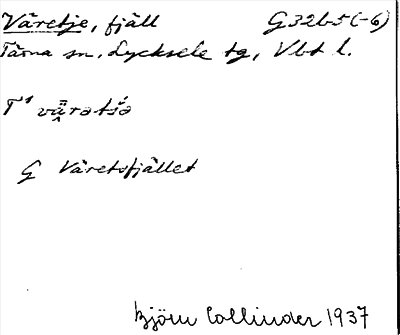 Väretje, fjäll G 32b5 (-6)
Tärna sn. Lycksele tg, Vbt l.
T¹ vǟ̮rətśə
G Väretsfjället
Björn Collinder 1937